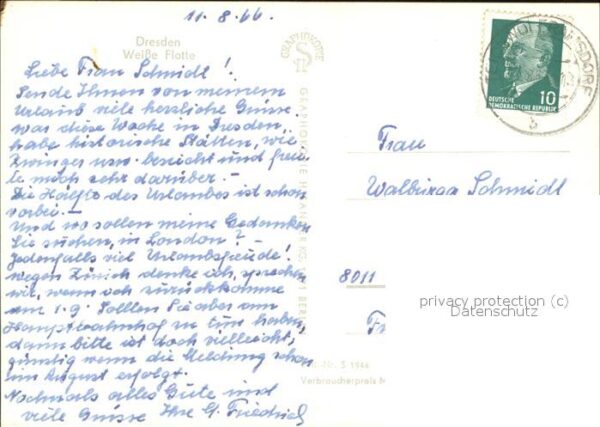 11.8.66
Dresden
Weiße Flotte
Liebe Frau Schmidl!
Sende Ihnen von meinem
Urlaub viele herzliche Grüsse.
war diese Woche in Dresden,
habe historische Stätten, wie
Zwinger usw. besucht und freute
mich sehr darüber.-
Die Hälfte des Urlaubes ist schon
vorbei.-
Und wo sollen meine Gedanken
Sie suchen, in London?-
Jedenfalls viel Urlaubsfreude!
wegen Zürich denke ich, sprechen
wir, wenn ich zurückkomme
am 1.9. Sollten Sie aber am
Hauptbahnhof zu tun haben,
dann bitte ist doch vielleicht,
günstig wenn die Meldung schon
im August erfolgt.
Nochmals alles Gute und
viele Grüsse Ihre G. Friedrich
GRAPHOKOPIE
GRAPHOKOPIE H.
KG,
BERL
DEUTSCHE
DEMOKRATISCHE REPUBLIK
10
b
Frau
Schmidl
8011
privacy protection (c)
Datenschutz
-Nr. S 1944
Verbraucherpreis M